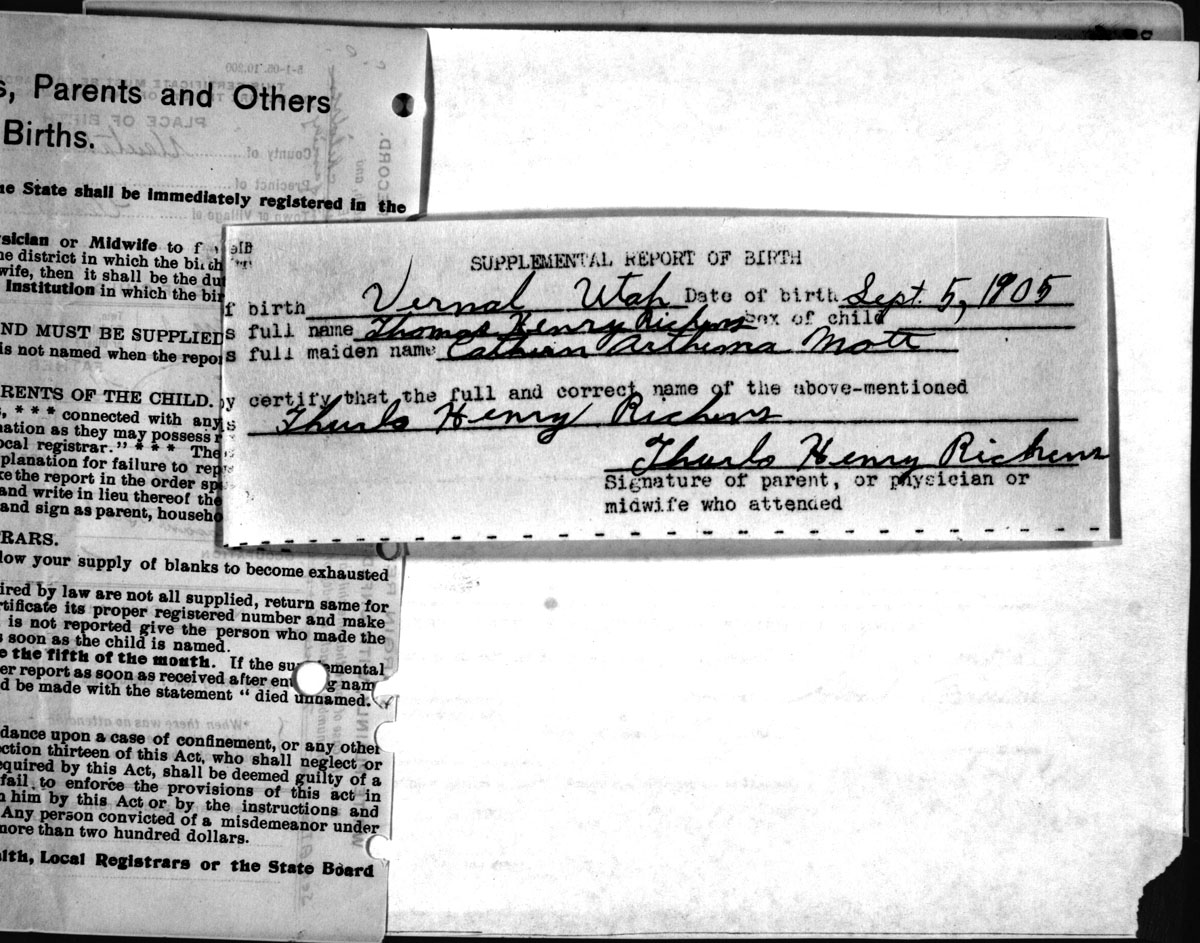 s, Parents and Others
Births.
ne State shall be immediately registered in the
ysician or Midwife to f
ne district in which the birth
wife, then it shall be the du
Institution in which the bir
ND MUST BE SUPPLIED
is not named when the repo
RENTS OF THE CHILD.
, * * * connected with any
nation as they may possess
ocal registrar." * * * The
planation for failure to rep
ke the report in the order sp
and write in lieu thereof the
and sign as parent, househo
RARS.
low your supply of blanks to become exhausted
ired by law are not all supplied, return same for
rtificate its proper registered number and make
is not reported give the person who made the
s soon as the child is named.
e the fifth of the month. If the su mental
er report as soon as received after en g nam
d be made with the statement "died unnamed.
dance upon a case of confinement, or any other
ction thirteen of this Act, who shall neglect or
equired by this Act, shall be deemed guilty of a
fail to enforce the provisions of this act in
n him by this Act or by the instructions and
Any person convicted of a misdemeanor under
more than two hundred dollars.
alth, Local Registrars or the State Board
SUPPLEMENTAL REPORT OF BIRTH
f birth Vernal Utah Date of birth Sept. 5, 1905
s full name Thomas Henry Richens Sex of child
s full maiden name Cathern Arthema Mott
by certify that the full and correct name of the above-mentioned
s Thurlo Henry Richens
Thurlo Henry Richens
Signature of parent, or physician or
midwife who attended